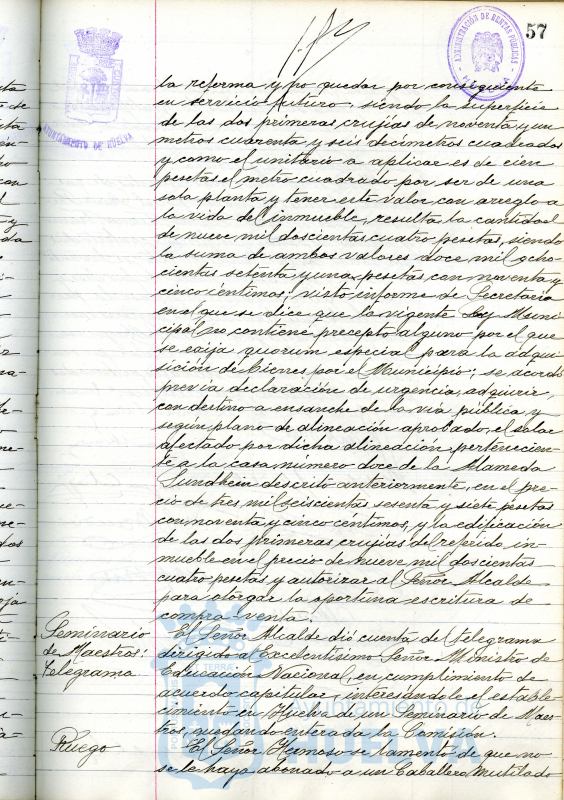 57
ADMINISTRACIÓN DE RENTAS PÚBLICAS
AYUNTAMIENTO DE HUELVA
la reforma y no quedar por consiguiente
en servicio futuro, siendo la superficie
de las dos primeras crujías de noventa y un
metros cuarenta y seis decimetros cuadrados
y como el unitario a aplicar es de cien
pesetas el metro cuadrado por ser de una
sola planta y tener este valor con arreglo a
la vida del inmueble, resulta la cantidad
de nueve mil doscientas cuatro pesetas, siendo
la suma de ambos valores doce mil ocho-
cientas setenta y una pesetas con noventa y
cinco céntimos; visto informe de Secretaría
en el que se dice que la vigente Ley Muni-
cipal no contiene precepto alguno por el que
se exija quorum especial para la adqui-
sición de bienes por el Municipio; se acordó
previa declaración de urgencia, adquirir,
con destino a ensanche de la vía pública, y
según plano de alineación aprobado, el solar
afectado por dicha alineación, pertenecien-
te a la casa numero doce de la Alameda
Sundhein descrito anteriormente, en el pre-
cio de tres mil seiscientas sesenta y siete pesetas
con noventa y cinco céntimos, y la edificación
de las dos primeras crujías del referido in-
mueble en el precio de nueve mil doscientas
cuatro pesetas y autorizar al Señor Alcalde
para otorgar la oportuna escritura de
compra-venta.
Seminario
de Maestros:
telegrama
El Señor Alcalde dió cuenta de telegrama
dirigido al Excelentísimo Señor Ministro de
Educación Nacional, en cumplimiento de
acuerdo capitular, interesándole el estable-
cimiento en Huelva de un Seminario de Maes-
tros, quedando enterada la Comisión.
Ruego
El Señor Hermoso se lamentó de que no
se le haya abonado a un Caballero Mutilado
Ayuntamiento de
HUELVA